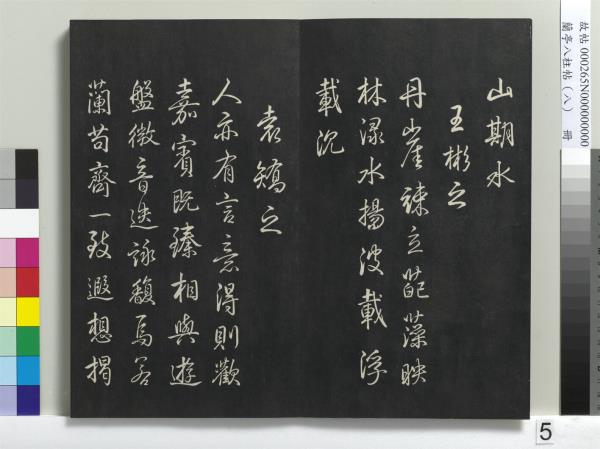 山期水
王彬之
丹崖竦立葩藻映
林渌水揚波載浮
載沉
袁嶠之
人亦有言意得則歡
嘉賓既臻相與遊
盤微音迭詠馥焉若
蘭苟齊一致遐想揭
故帖 000265N000000000
蘭亭八柱帖（八） 冊
5